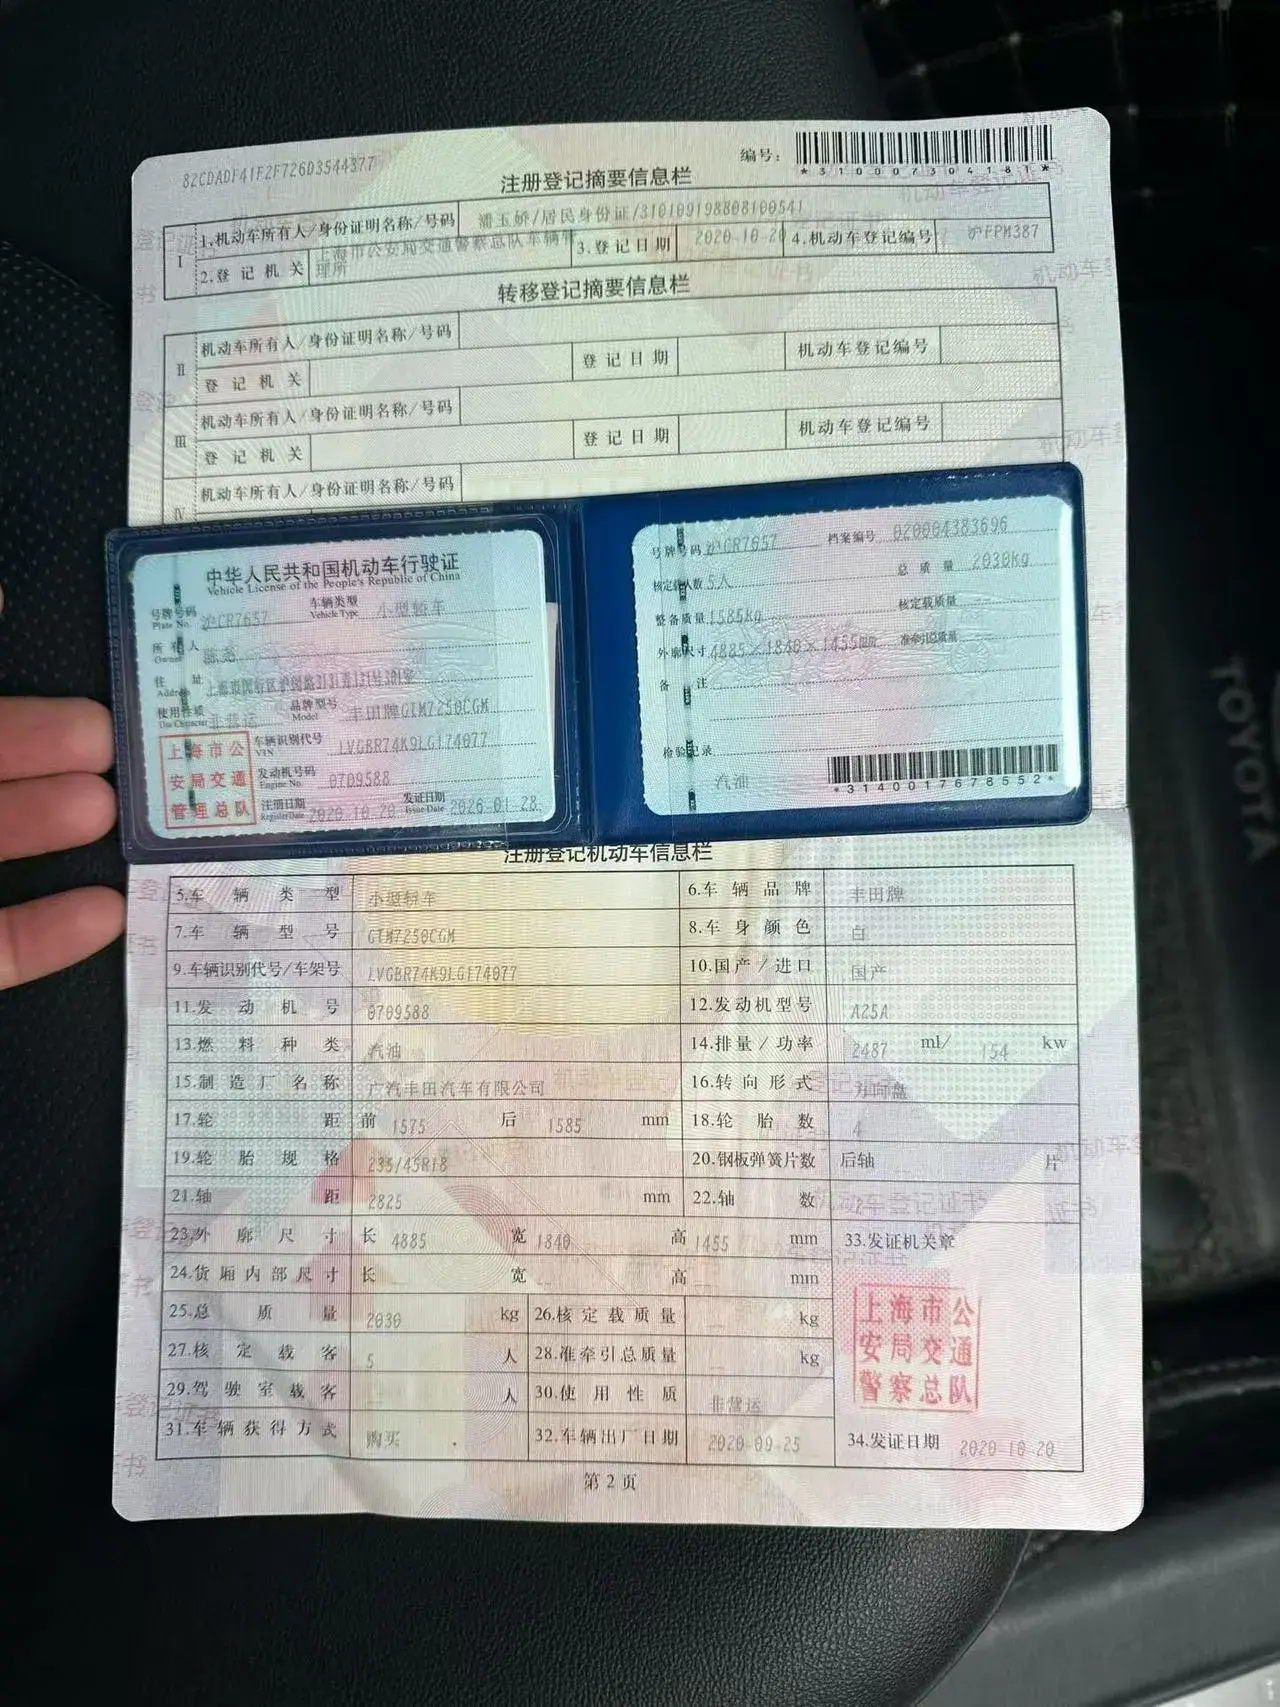 82CDADF41F2F726D3544377
编号：
*310007304181*
注册登记摘要信息栏
I
1.机动车所有人/身份证明名称/号码 潘玉娇/居民身份证/310109198808100541
2.登记机关 上海市公安局交通警察总队车辆管理所 3.登记日期 2020-10-20 4.机动车登记编号 沪FPM387
转移登记摘要信息栏
II
机动车所有人/身份证明名称/号码
登记机关 登记日期 机动车登记编号
III
机动车所有人/身份证明名称/号码
登记机关 登记日期 机动车登记编号
IV
机动车所有人/身份证明名称/号码
中华人民共和国机动车行驶证
Vehicle License of the People's Republic of China
号牌号码 沪CR7657 车辆类型 小型轿车
Plate No. Vehicle Type
所有人
Owner
住址
Address
使用性质 非营运 品牌型号 丰田牌GTM7250CGM
Use Character Model
上海市公安局交通管理总队
车辆识别代号 LVGBR74K9LG174077
VIN
发动机号码 0709588
Engine No.
注册日期 2020-10-20 发证日期 2026-01-28
Register Date Issue Date
号牌号码 沪CR7657 档案编号 020004383696
核定载人数 5人 总质量 2030kg
整备质量 1585kg 核定载质量
外廓尺寸 4885×1840×1455mm 准牵引总质量
备注
检验记录
汽油
*3140017678552*
注册登记机动车信息栏
5.车辆类型 小型轿车 6.车辆品牌 丰田牌
7.车辆型号 GTM7250CGM 8.车身颜色 白
9.车辆识别代号/车架号 LVGBR74K9LG174077 10.国产/进口 国产
11.发动机号 0709588 12.发动机型号 A25A
13.燃料种类 汽油 14.排量/功率 2487 ml/ 154 kw
15.制造厂名称 广汽丰田汽车有限公司 16.转向形式 方向盘
17.轮距 前 1575 后 1585 mm 18.轮胎数 4
19.轮胎规格 235/45R18 20.钢板弹簧片数 后轴 片
21.轴距 2825 mm 22.轴数 2
23.外廓尺寸 长 4885 宽 1840 高 1455 mm 33.发证机关章
24.货厢内部尺寸 长 宽 高 mm
25.总质量 2030 kg 26.核定载质量 kg
27.核定载客 5 人 28.准牵引总质量 kg
29.驾驶室载客 人 30.使用性质 非营运
31.车辆获得方式 购买 32.车辆出厂日期 2020-09-25 34.发证日期 2020-10-20
上海市公安局交通警察总队
第 2 页
TOYOTA